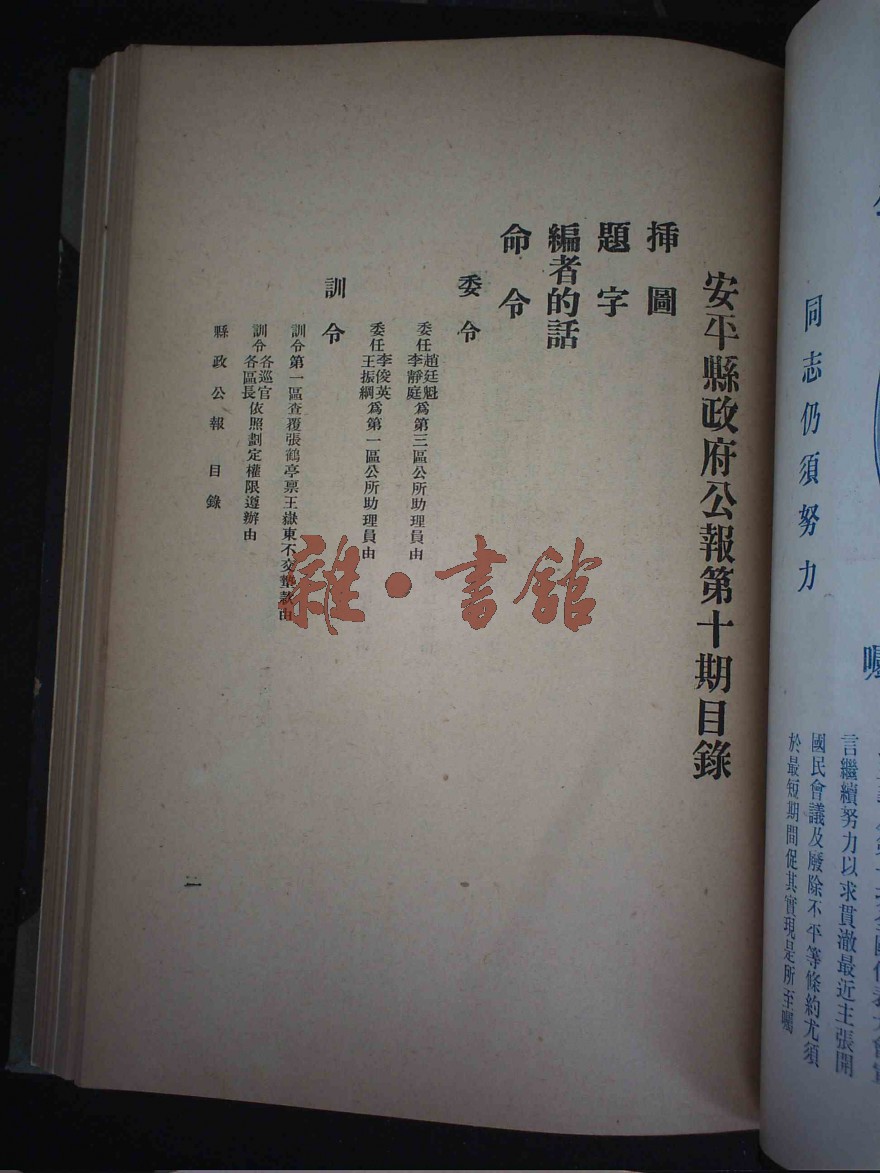 安平縣政府公報第十期目錄
揷圖
題字
編者的話
命令
委令
委任趙廷魁李靜庭爲第三區公所助理員由
委任李俊英王振綱爲第一區公所助理員由
訓令
訓令第一區查覆張鶴亭票王嶽東不交墊款由
訓令各巡官各區長依照劃定權限遵辦由
縣政公報目錄
一
雜·書館
同志仍須努力
囑
言繼續努力以求貫澈最近主張開
國民會議及廢除不平等條約尤須
於最短期間促其實現是所至囑